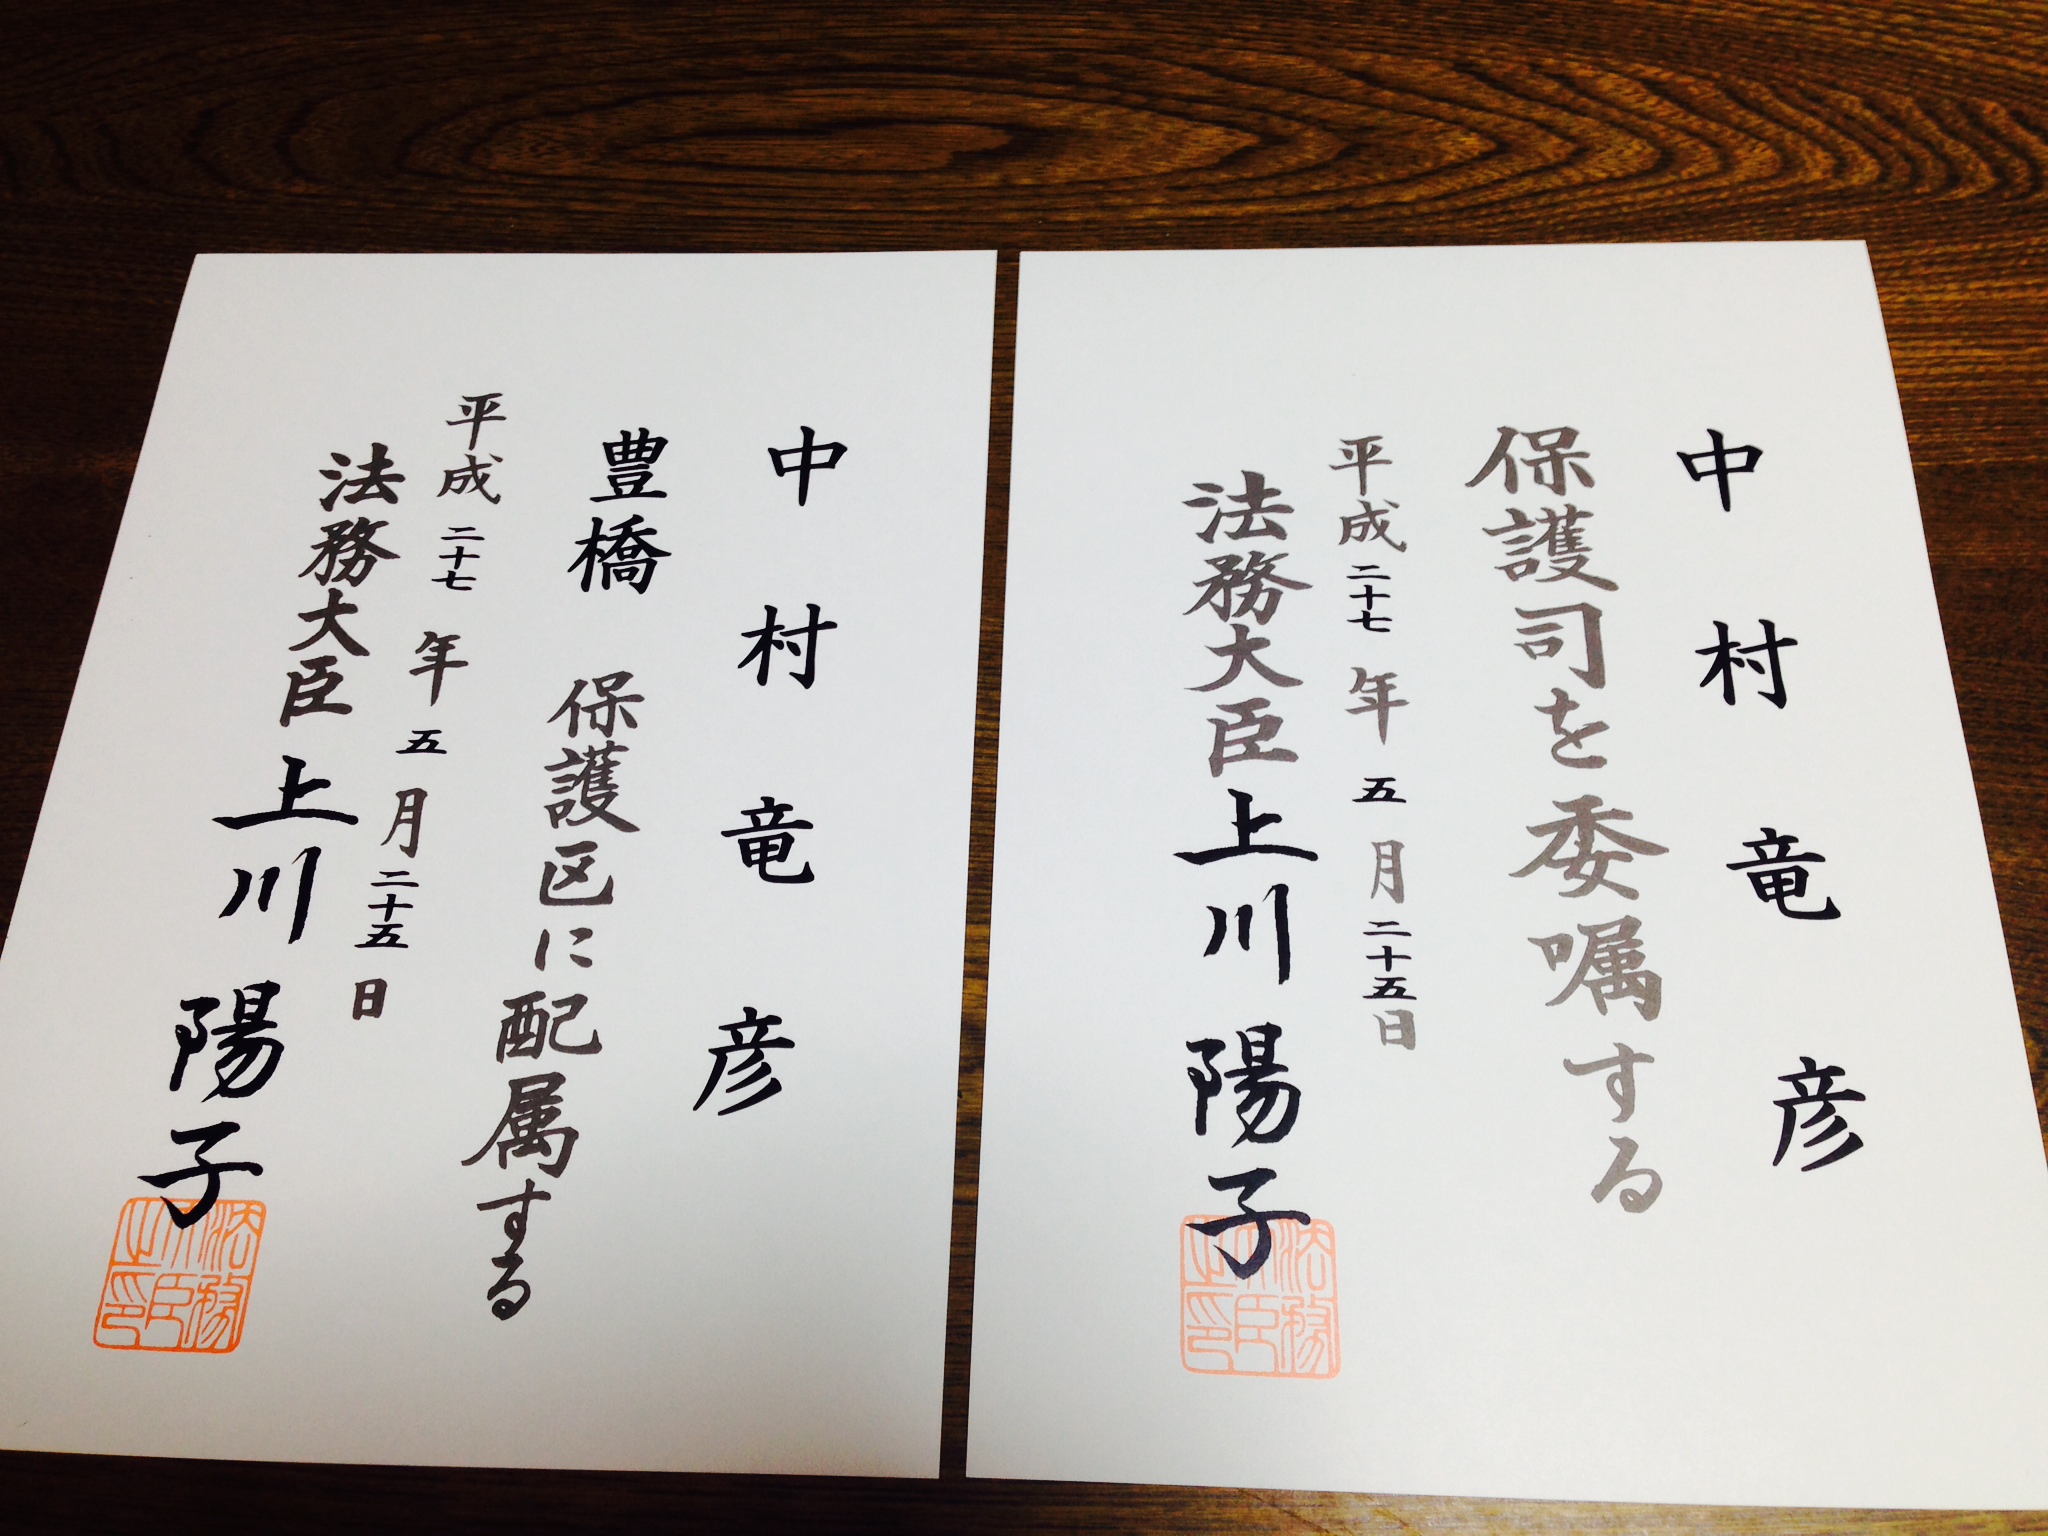 中村竜彦
保護司を委嘱する
平成二十七年五月二十五日
法務大臣 上川陽子
法務大臣之印
中村竜彦
豊橋 保護区に配属する
平成二十七年五月二十五日
法務大臣 上川陽子
法務大臣之印